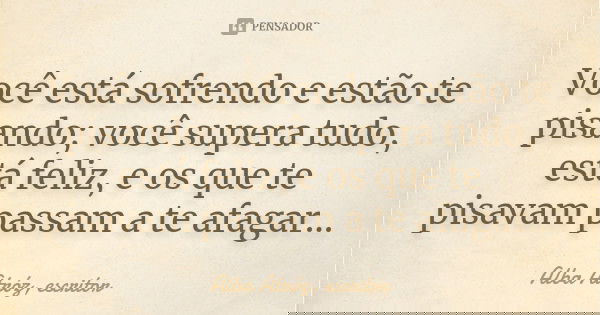 PENSADOR
Você está sofrendo e estão te
pisando; você supera tudo,
está feliz, e os que te
pisavam passam a te afagar...
Alba
escritor